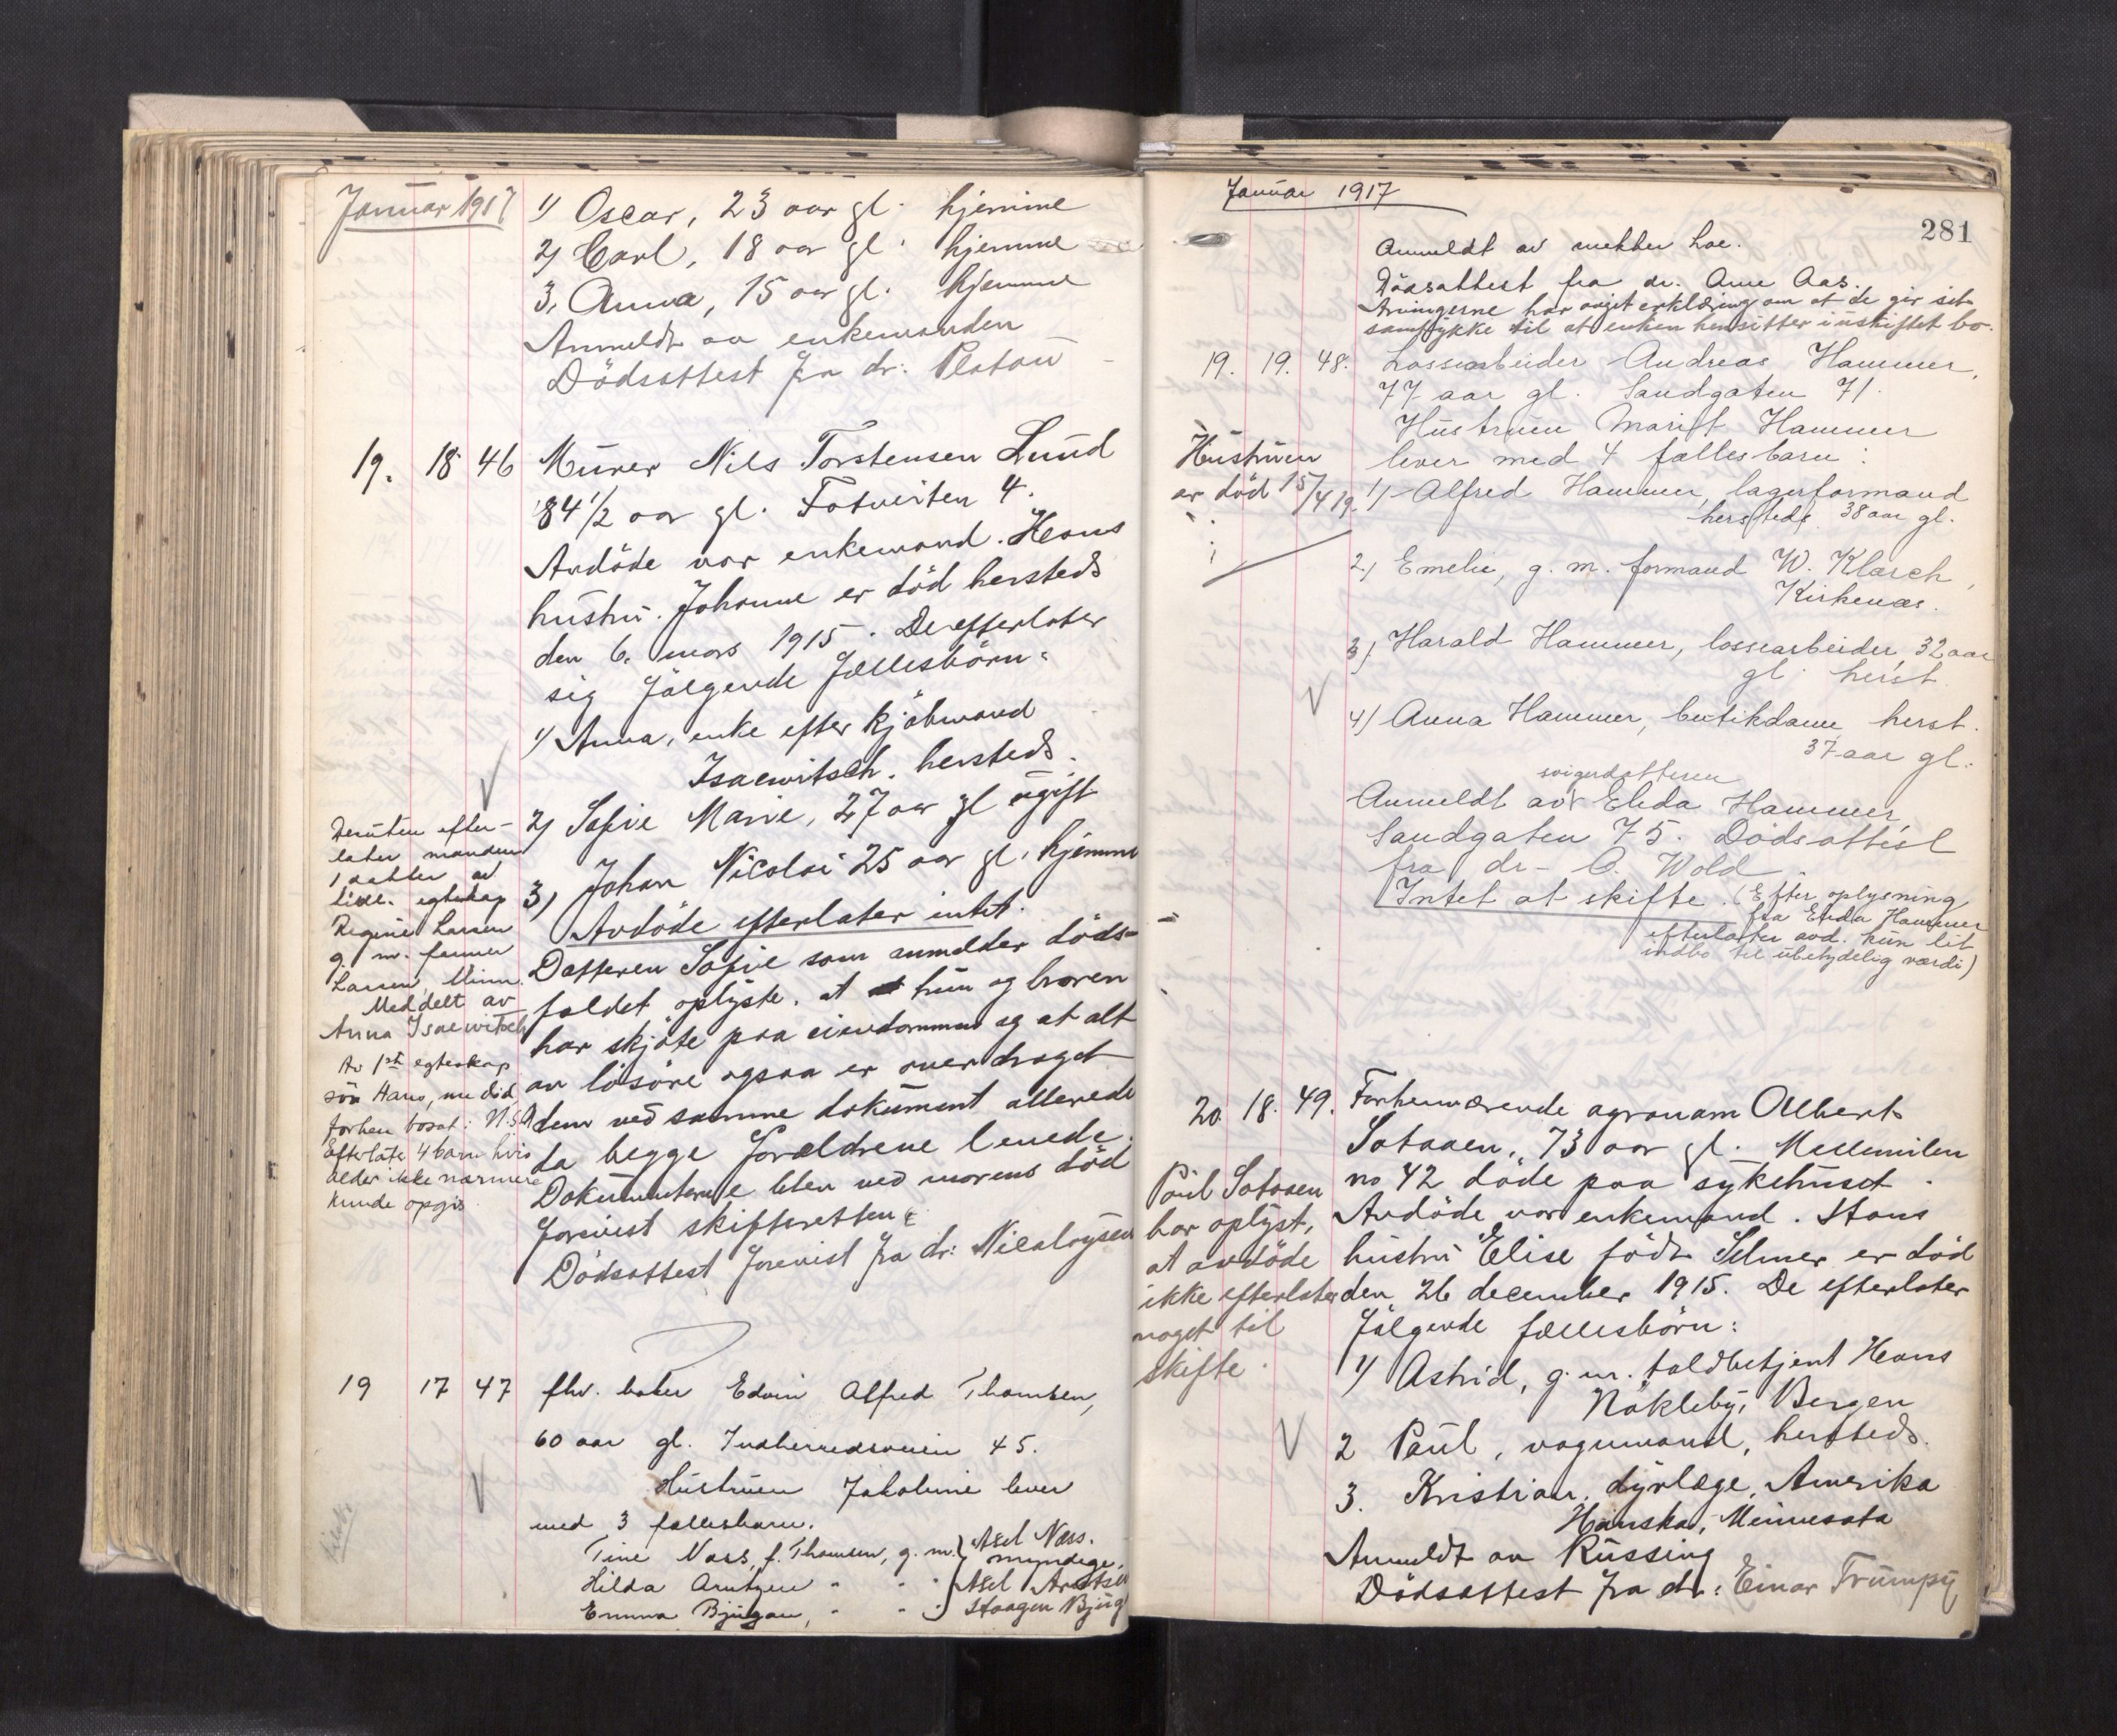 Januar 1917
1) Oscar, 23 aar gl. hjemme
2) Carl, 18 aar gl. hjemme
3, Anna, 15 aar gl. hjemme
Anmeldt av enkemanden
Dödsattest fra dr. Platou
19. 18 46 Murer Nils Torstensen Lund
84 1/2 aar gl. Fotveiten 4.
Avdöde var enkemand. Hans
hustru Johanne er död hersteds
den 6. mars 1915. De efterlater
sig fölgende fællesbörn:
1) Anna, enke efter kjöbmand
Isaewitsch. hersteds.
2) Sofie Marie, 27 aar gl ugift
3) Johan Nicolai 25 aar gl. hjemme
Avdöde efterlater intet.
Datteren Sofie som anmelder döds-
faldet oplyste, at hun og broren
har skjöte paa eiendommen og at alt
av lösöre ogsaa er overdraget
dem ved samme dokument allerede
da begge forældrene levede.
Dokumenterne blev ved morens död
forevist skifteretten.
Dödsattest forevist fra dr. Nicolaysen
Desuten efter-
later manden
1 datter av
tidl. egteskap
Regine Larsen
g. m. farmer
Larsen, Minn.
Meddelt av
Anna Isaewitsch
Av 1ste egteskap
sön Hans, nu död,
forhen bosat i N.S.A
Efterlater 4 barn hvis
alder ikke nærmere
kunde opgis.
19 17 47 fhv. baker Edvin Alfred Thomsen,
60 aar gl. Indherredsveien 45.
Hustruen Jakobine lever
med 3 fællesbarn.
Tine Næss, f. Thomsen, g. m. Axel Næss.
myndige.
Hilda Arntzen " " " Axel Arntzen
Emma Bjugan, " " Haagen Bjug
Januar 1917
281
Anmeldt av
Dödsattest fra dr. Arne Aas.
Arvingerne har avgit erklæring om at de gir sit
samtykke til at enken hensitter i uskiftet bo.
19. 19. 48. Lossearbeider Andreas Hammer,
77 aar gl. Sandgaten 71.
Hustruen Marit Hammer
lever med 4 fællesbarn:
Hustruen
er död 15/4 19.
1) Alfred Hammer, lagerformand
hersteds. 38 aar gl.
2) Emelie, g. m. formand W. Klarch,
Kirkenæs.
3) Harald Hammer, lossearbeider, 32 aar
gl. herst.
4) Anna Hammer, butikdame herst.
37 aar gl.
svigerdatteren
Anmeldt av Elida Hammer,
Sandgaten 75. Dödsattest
fra dr. O. Wold
Intet at skifte. (Efter oplysning
fra Elida Hammer
efterlater avd. kun lit
indbo til ubetydelig værdi)
20. 18. 49. Forhenværende agronom Albert
Sotaaen, 73 aar gl. Mellemilen
no 42 döde paa sykehuset.
Avdöde var enkemand. Hans
hustru Elise födt Selmer er död
den 26 december 1915. De efterlater
fölgende fællesbörn:
1) Astrid, g. m. toldbetjent Hans
Nökleby, Bergen
2 Paul, vognmand, hersteds.
3. Kristian, dyrlæge, Amerika
Hanska, Minnesota
Anmeldt av Russing
Dödsattest fra dr. Einar Trumpy
Paul Sotaaen
har oplyst,
at avdöde
ikke efterlater
noget til
skifte.